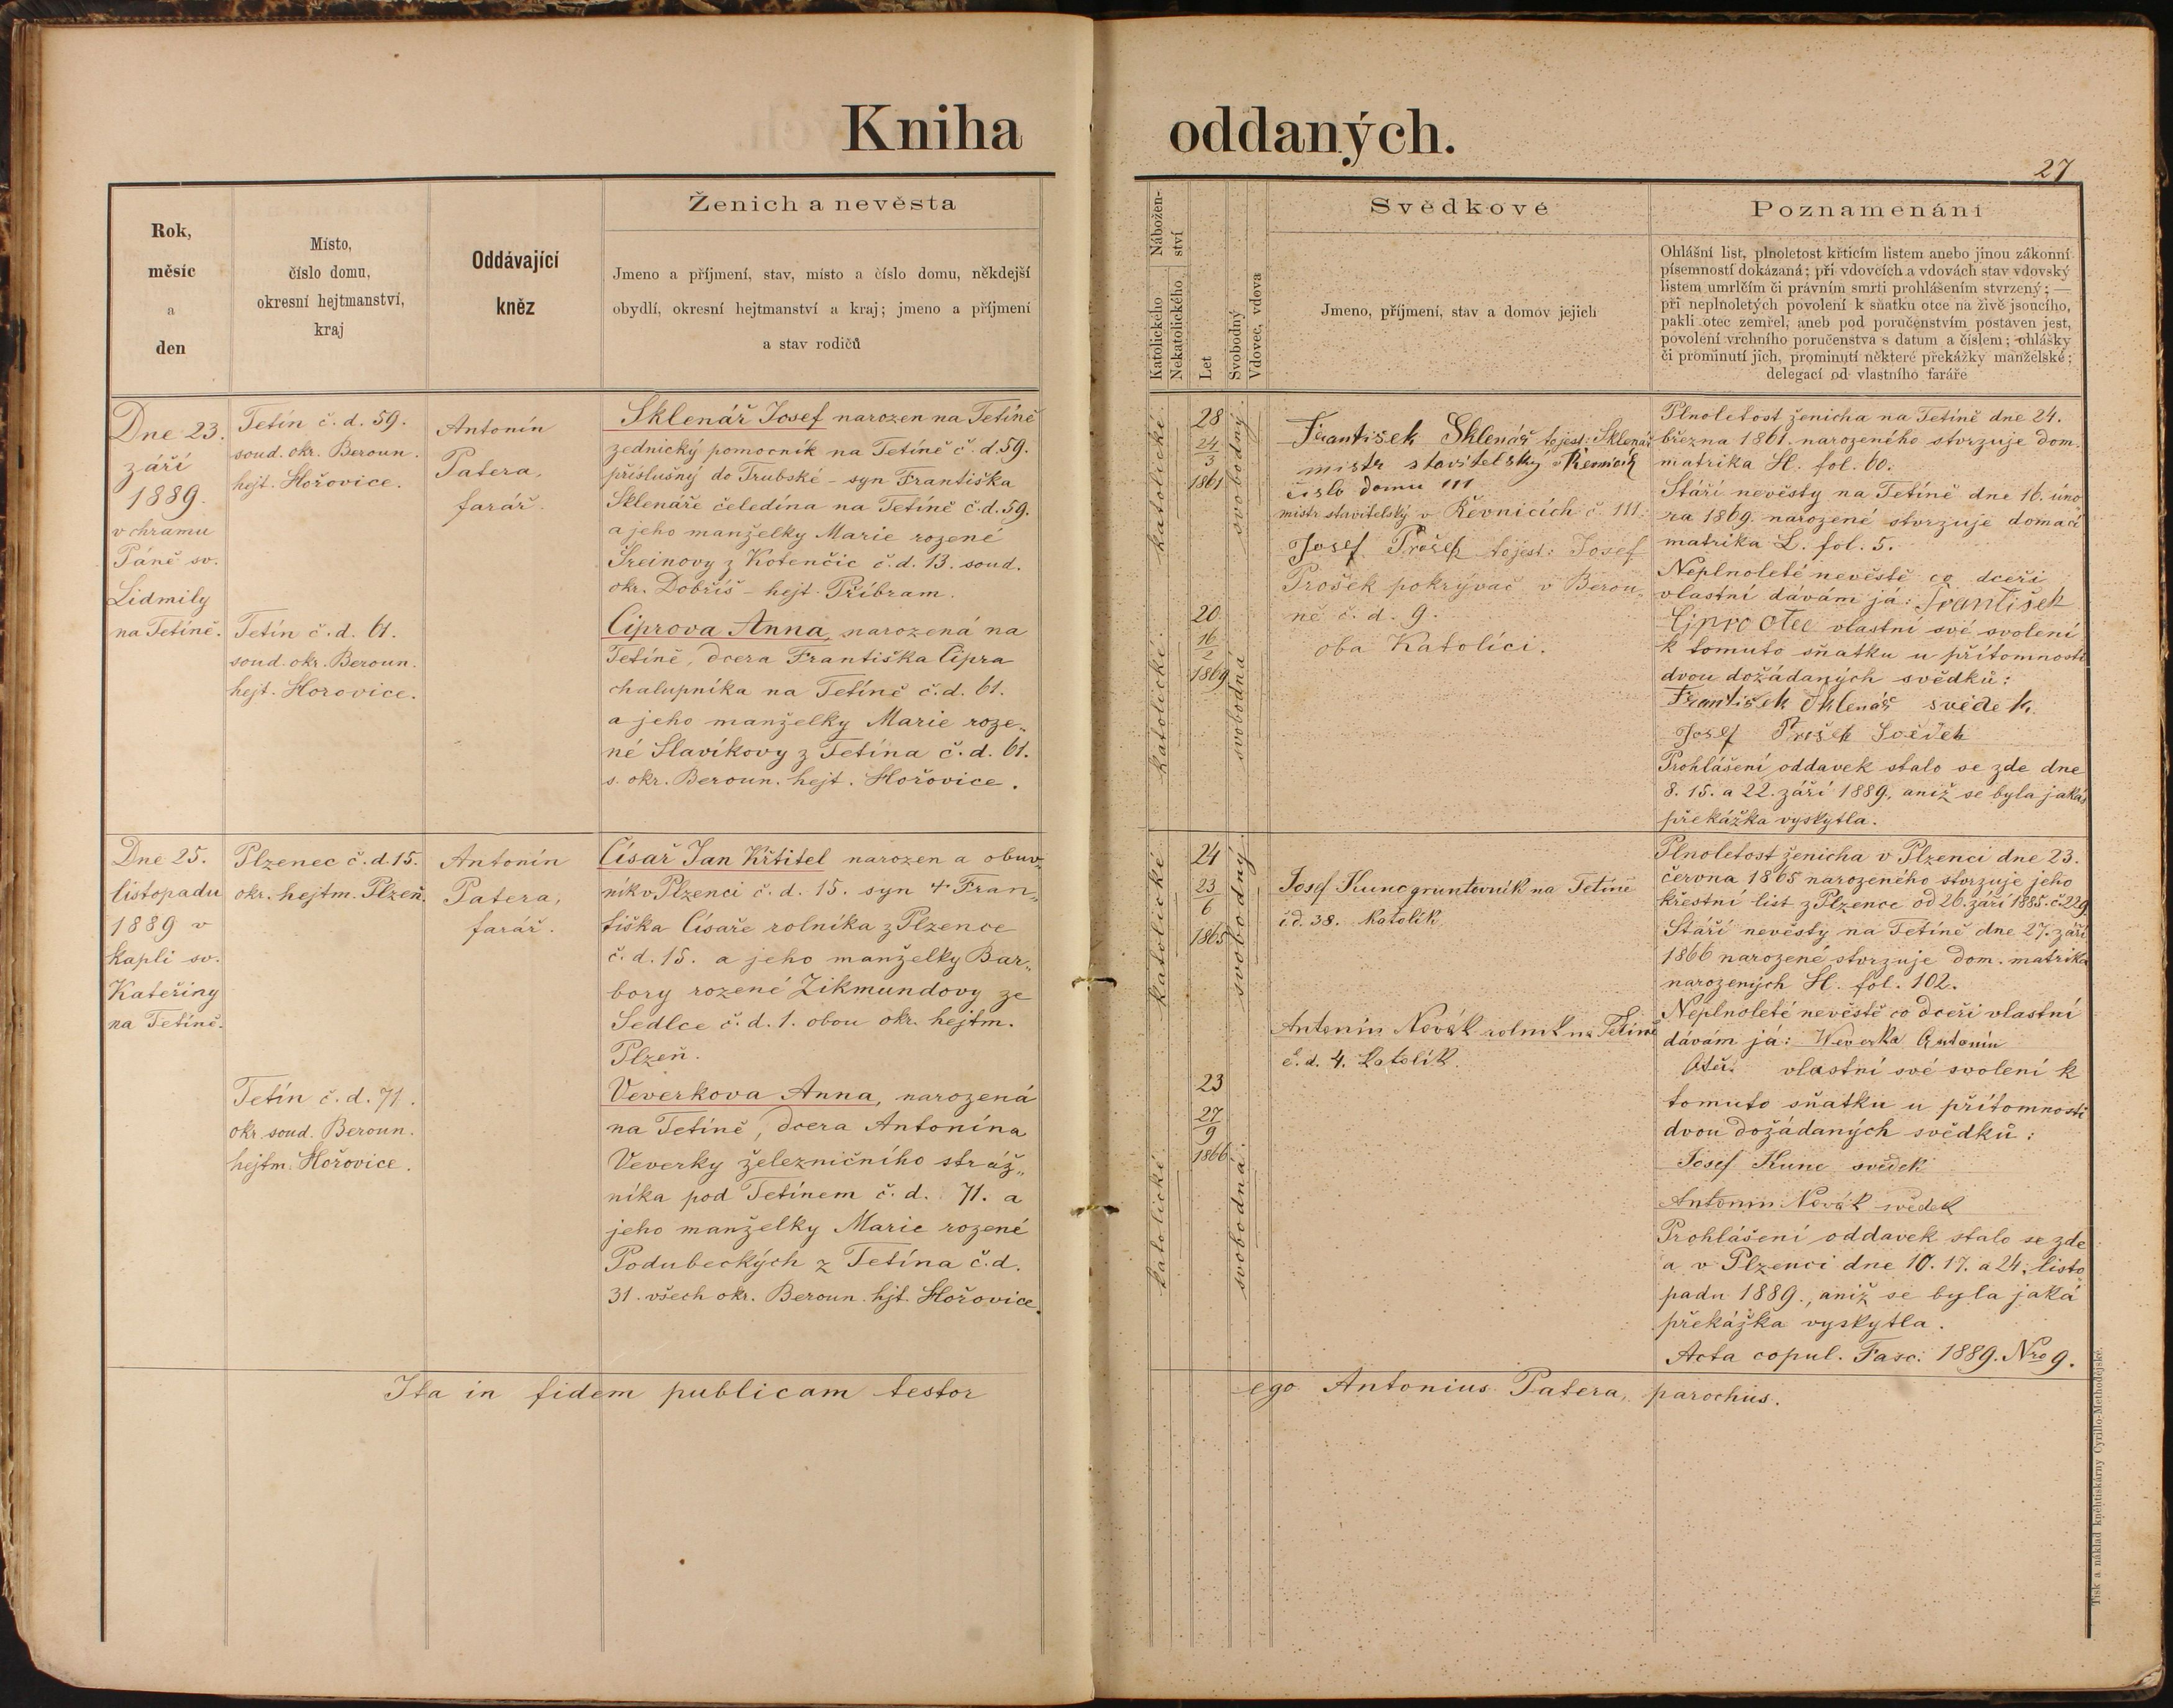 Kniha oddaných.
27
Rok,
měsíc
a
den
Místo,
číslo domu,
okresní hejtmanství,
kraj
Oddávající
kněz
Ženich a nevěsta
Jmeno a příjmení, stav, místo a číslo domu, někdejší
obydlí, okresní hejtmanství a kraj; jmeno a příjmení
a stav rodičů
Nábožen-
ství
Katolického
Nekatolického
Let
Svobodný
Vdovec, vdova
Svědkové
Jmeno, příjmení, stav a domov jejich
Poznamenání
Ohlášní list, plnoletost křticím listem anebo jinou zákonní
písemností dokázaná; při vdovcích a vdovách stav vdovský
listem umrlčím či právním smrti prohlášením stvrzený; —
při neplnoletých povolení k sňatku otce na živě jsoucího,
pakli otec zemřel, aneb pod poručenstvím postaven jest,
povolení vrchního poručenstva s datum a číslem; ohlášky
či prominutí jich, prominutí některé překážky manželské;
delegací od vlastního faráře
Dne 23.
září
1889.
v chrámu
Páně sv.
Lidmily
na Tetíně.
Tetín č. d. 59.
soud. okr. Beroun.
hejt. Hořovice.
Antonín
Patera,
farář.
Sklenář Josef narozen na Tetíně
zednický pomocník na Tetíně č. d. 59.
příslušný do Trubské - syn Františka
Sklenáře čeledína na Tetíně č. d. 59.
a jeho manželky Marie rozené
Šreinovy z Kotenčic č. d. 13. soud.
okr. Dobříš - hejt. Příbram.
Tetín č. d. 61.
soud. okr. Beroun.
hejt. Hořovice.
Ciprova Anna, narozená na
Tetíně, dcera Františka Cipra
chalupníka na Tetíně č. d. 61.
a jeho manželky Marie roze„
né Slavíkovy z Tetína č. d. 61.
s. okr. Beroun. hejt. Hořovice.
katolické
28
24
3
1861
svobodný
katolické
20
16
2
1869
svobodná
František Sklenář tojest: Sklenář
mistr stavitelský v
číslo domu 111
mistr stavitelský v Řevnicích č. 111.
Josef Prošek tojest: Josef
Prošek pokrývač v Berou„
ně č. d. 9.
oba Katolíci.
Plnoletost ženicha na Tetíně dne 24.
března 1861. narozeného stvrzuje dom.
matrika H. fol. 60.
Stáří nevěsty na Tetíně dne 16. úno
ra 1869. narozené stvrzuje domácí
matrika L. fol. 5.
Neplnoleté nevěstě co dceři
vlastní dávám já: František
Cipro otec vlastní své svolení
k tomuto sňatku u přítomnosti
dvou dožádaných svědků:
František Sklenář svědek.
Josef Prošek Svědek
Prohlášení oddavek stalo se zde dne
8. 15. a 22. září 1889, aniž se byla jakás
překážka vyskytla.
Dne 25.
listopadu
1889 v
kapli sv.
Kateřiny
na Tetíně.
Plzenec č. d. 15.
okr. hejtm. Plzeň.
Antonín
Patera,
farář.
Císař Jan Křtitel narozen a obuv„
ník v Plzenci č. d. 15. syn † Fran„
tiška Císaře rolníka z Plzence
č. d. 15. a jeho manželky Bar„
bory rozené Zikmundovy ze
Sedlce č. d. 1. obou okr. hejtm.
Plzeň.
Tetín č. d. 71.
okr. soud. Beroun.
hejtm. Hořovice.
Veverkova Anna, narozená
na Tetíně, dcera Antonína
Veverky železničního stráž„
níka pod Tetínem č. d. 71. a
jeho manželky Marie rozené
Podubeckých z Tetína č. d.
31. všech okr. Beroun. hjt. Hořovice.
katolické
24
23
6
1865
svobodný
katolické
23
27
9
1866
svobodná
Josef Kunc gruntovník na Tetíně
č. d. 38. Katolík
Antonín Novák rolník na Tetíně
č. d. 4. Katolík.
Plnoletost ženicha v Plzenci dne 23.
června 1865 narozeného stvrzuje jeho
křestní list z Plzence od 26. září 1885. č. 229
Stáří nevěsty na Tetíně dne 27. září
1866 narozené stvrzuje dom. matrika
narozených H. fol. 102.
Neplnoleté nevěstě co dceři vlastní
dávám já: Weverka Antonín
Otec. vlastní své svolení k
tomuto sňatku u přítomnosti
dvou dožádaných svědků:
Josef Kunc svědek
Antonín Novák svědek
Prohlášení oddavek stalo se zde
a v Plzenci dne 10. 17. a 24. listo
padu 1889., aniž se byla jaká
překážka vyskytla.
Acta copul. Fasc. 1889. Nro 9.
Ita in fidem publicam testor ego Antonius Patera, parochus.
Tisk a náklad knihtiskárny Cyrillo-Methodějské.